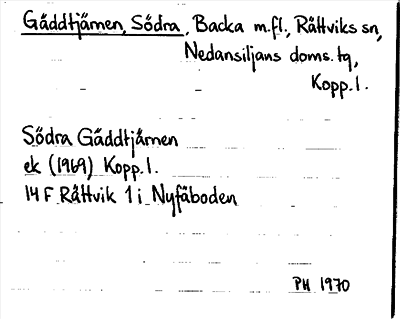 Gäddtjärnen, Södra, Backa m.fl., Rättviks sn,
Nedansiljans doms. tg,
Kopp. l.
Södra Gäddtjärnen
ek (1969) Kopp. l.
14 F Rättvik 1 i Nyfäboden
PH 1970